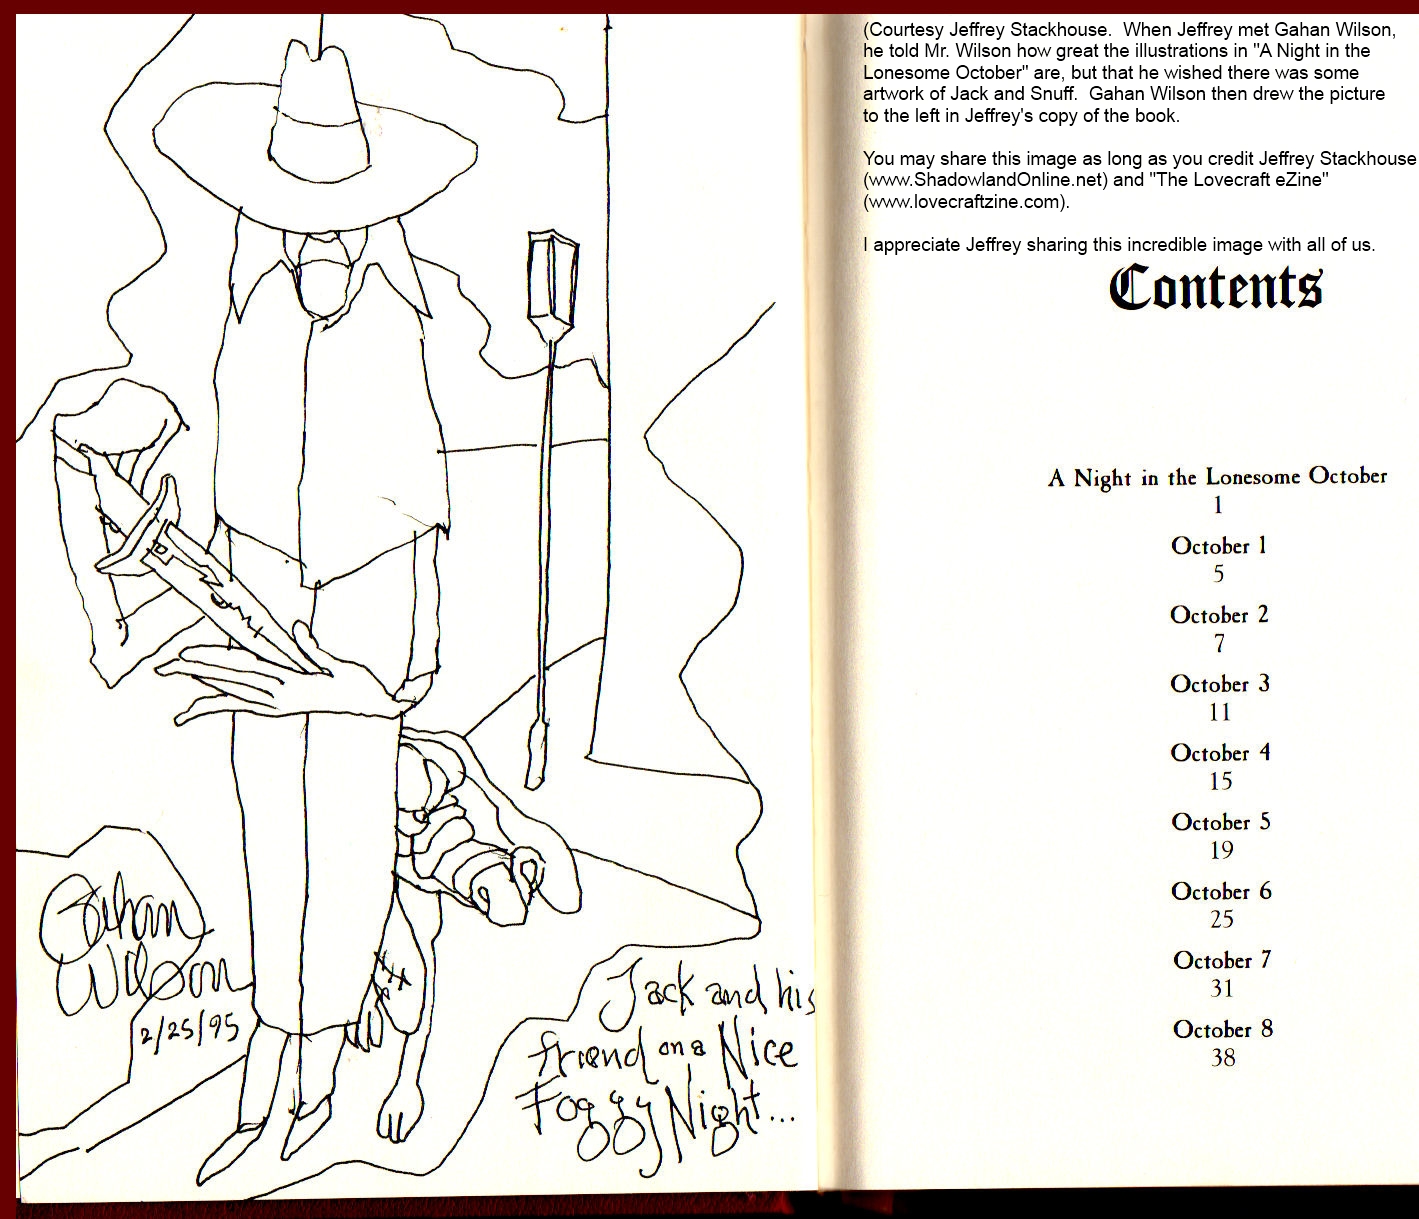 Gahan
Wilson
2/25/95
Jack and his
friend on a Nice
Foggy Night...
(Courtesy Jeffrey Stackhouse. When Jeffrey met Gahan Wilson,
he told Mr. Wilson how great the illustrations in "A Night in the
Lonesome October" are, but that he wished there was some
artwork of Jack and Snuff. Gahan Wilson then drew the picture
to the left in Jeffrey's copy of the book.
You may share this image as long as you credit Jeffrey Stackhouse
(www.ShadowlandOnline.net) and "The Lovecraft eZine"
(www.lovecraftzine.com).
I appreciate Jeffrey sharing this incredible image with all of us.
Contents
A Night in the Lonesome October
1
October 1
5
October 2
7
October 3
11
October 4
15
October 5
19
October 6
25
October 7
31
October 8
38